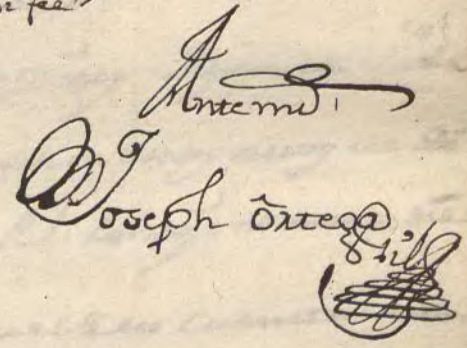 n fee
Antemi
Joseph Ortega